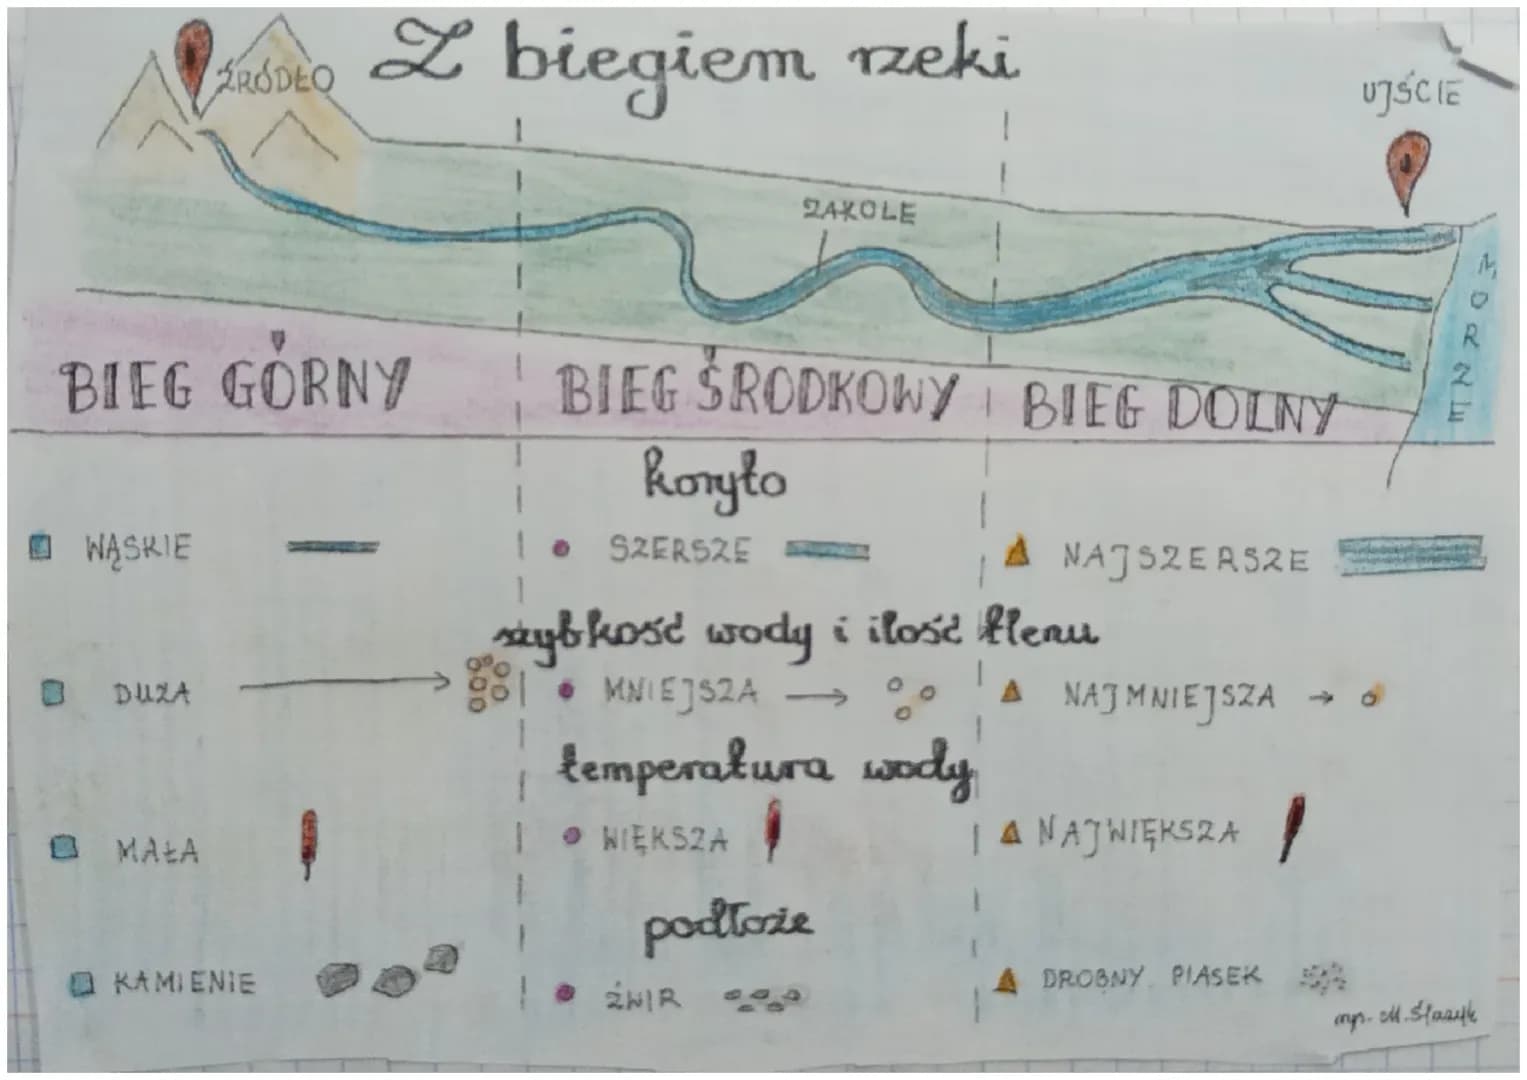 Z biegiem rzeki
ŹRÓDŁO
UJŚCIE
ZAKOLE
MORZE
BIEG GÓRNY
BIEG ŚRODKOWY
BIEG DOLNY
koryto
WĄSKIE
SZERSZE
NAJSZERSZE
szybkość wody i ilość tlenu
DUŻA
MNIEJSZA
NAJMNIEJSZA
temperatura wody
MAŁA
WIĘKSZA
NAJWIĘKSZA
podłoże
KAMIENIE
ŻWIR
DROBNY PIASEK
M.